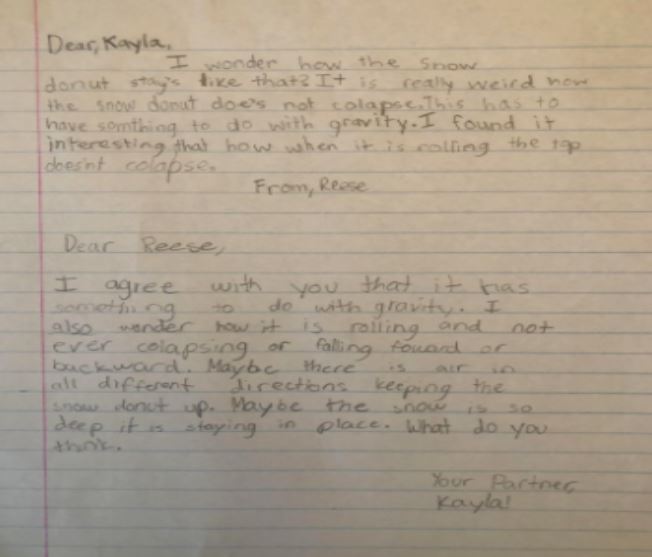 Dear, Kayla,
I wonder how the snow
donut stay's like that? It is really weird how
the snow donut doe's not colapse. This has to
have somthing to do with gravity. I found it
interesting that how when it is rolling the top
doesnt colapse.
From, Reese
Dear Reese,
I agree with you that it has
something to do with gravity. I
also wonder how it is rolling and not
ever colapsing or falling foward or
backward. Maybe there is air in
all different directions keeping the
snow donut up. Maybe the snow is so
deep it is staying in place. What do you
think.
Your Partner,
Kayla!